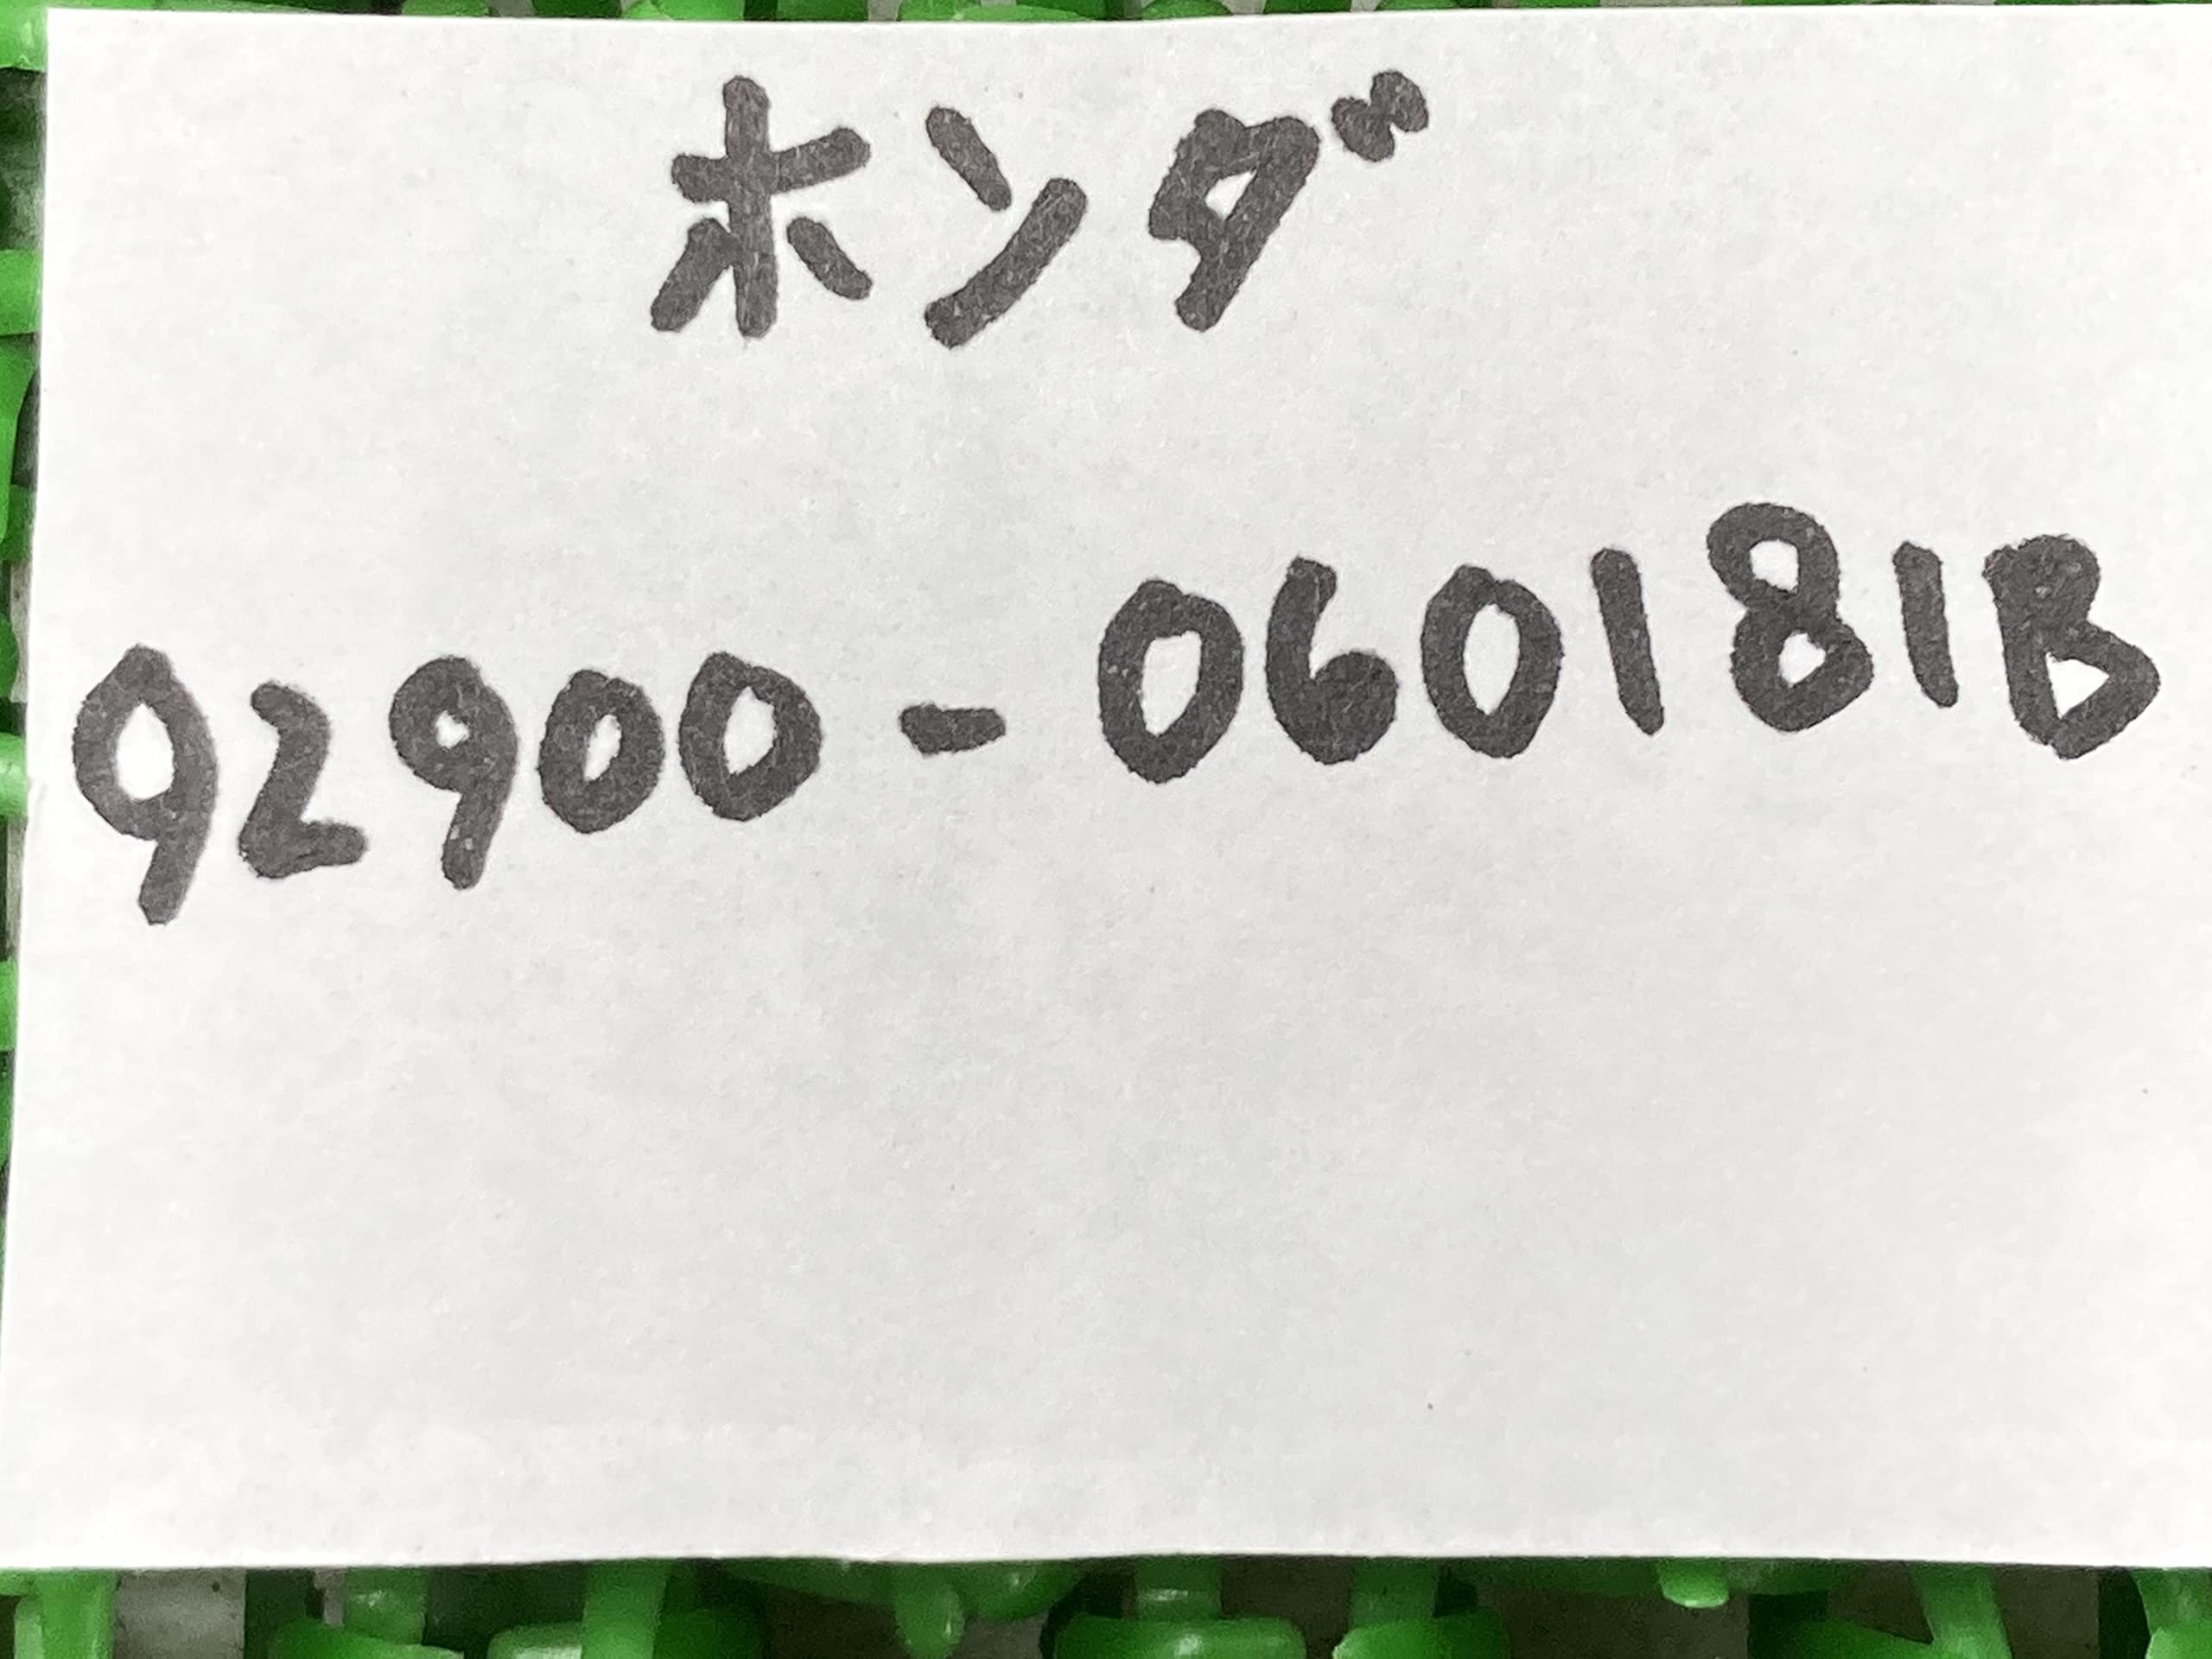 ホンダ
92900-060181B